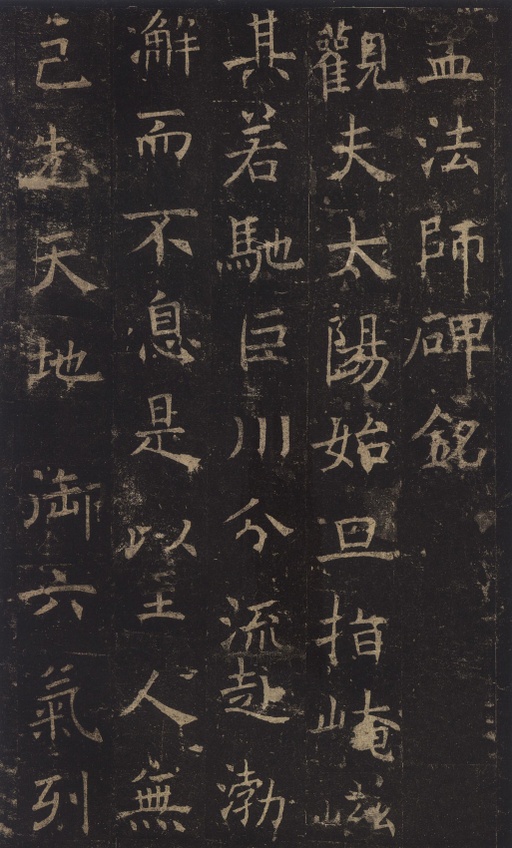 孟法師碑銘
觀夫太陽始旦指崦嵫
其若馳巨川分流赴渤
澥而不息是以至人無
己先天地御六氣列